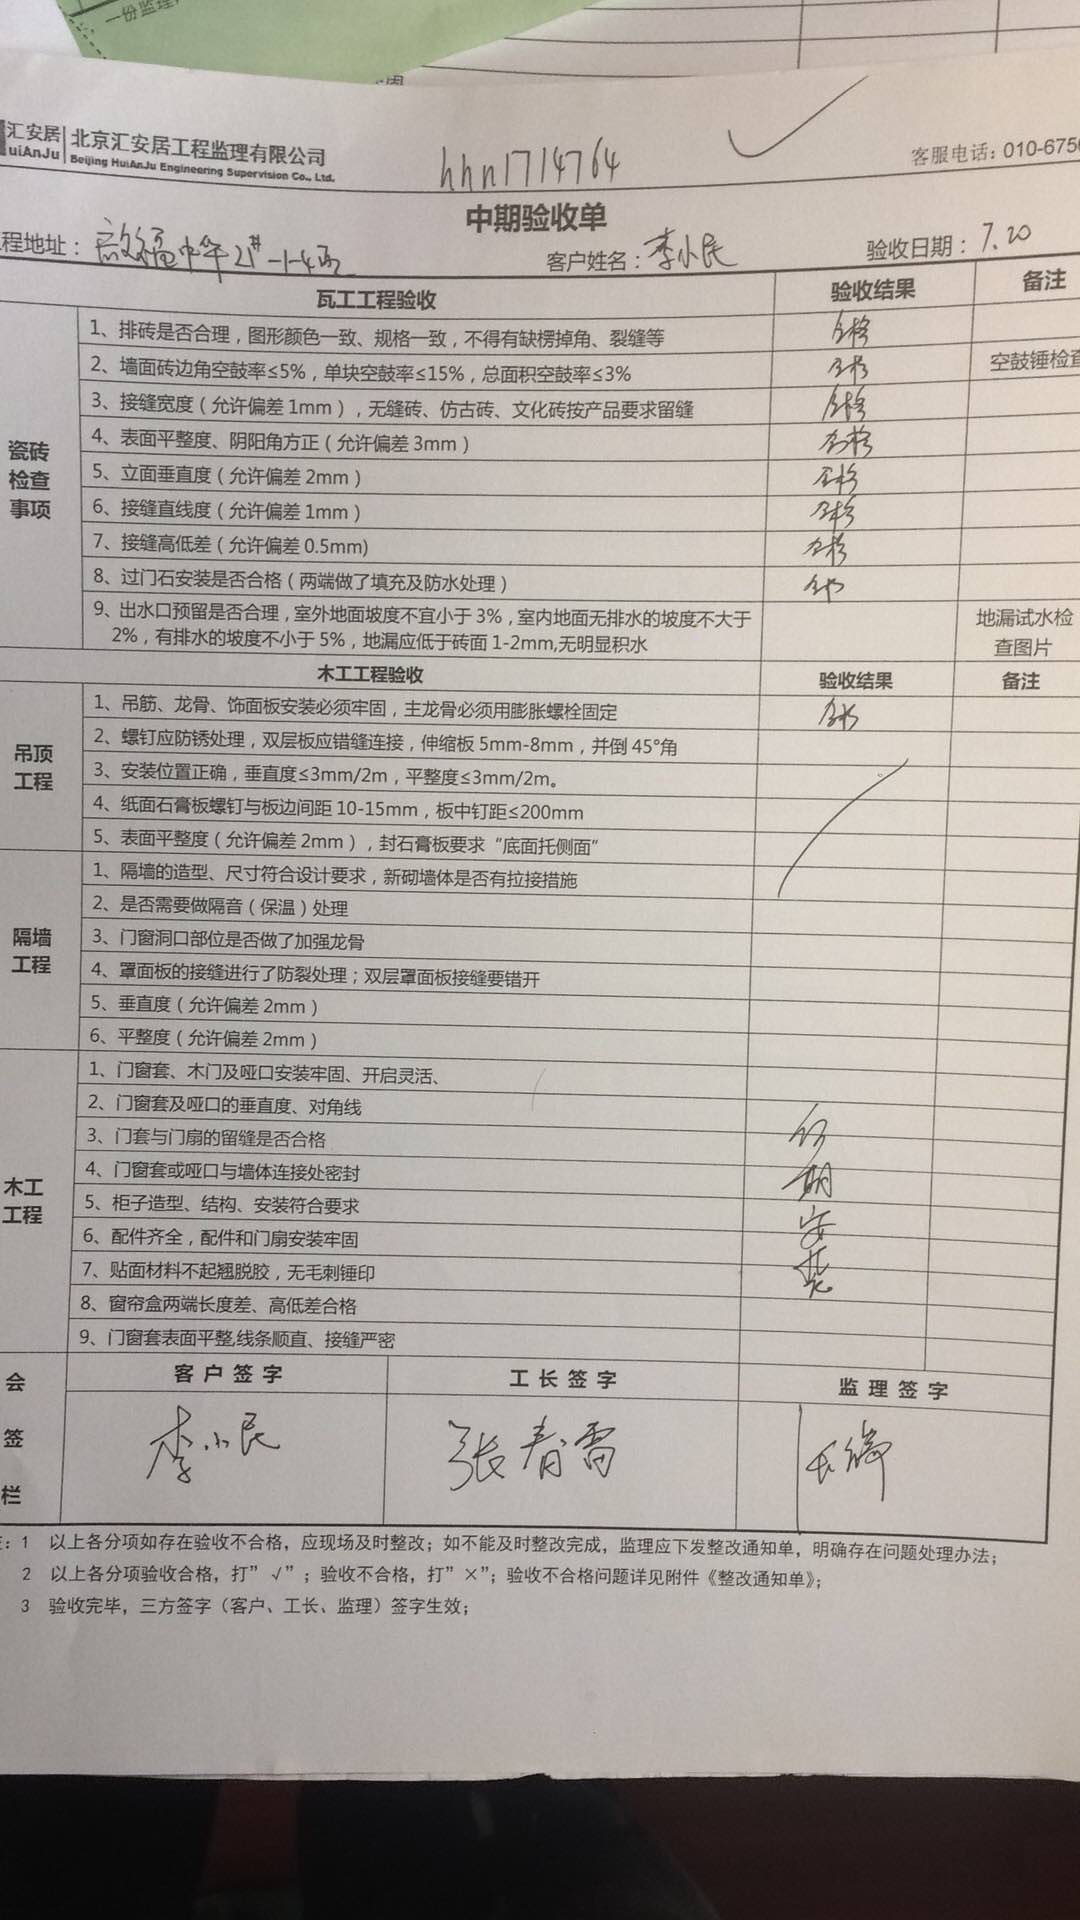 一份监理
汇安居 北京汇安居工程监理有限公司
uiAnJu Beijing HuiAnJu Engineering Supervision Co., Ltd.
hhn1714764
客服电话：010-6756
中期验收单
程地址：
客户姓名：李小民
验收日期：7.20
瓦工工程验收 验收结果 备注
瓷砖检查事项
1、排砖是否合理，图形颜色一致、规格一致，不得有缺楞掉角、裂缝等 合格
2、墙面砖边角空鼓率≤5%，单块空鼓率≤15%，总面积空鼓率≤3% 合格 空鼓锤检查
3、接缝宽度（允许偏差1mm），无缝砖、仿古砖、文化砖按产品要求留缝 合格
4、表面平整度、阴阳角方正（允许偏差3mm） 合格
5、立面垂直度（允许偏差2mm） 合格
6、接缝直线度（允许偏差1mm） 合格
7、接缝高低差（允许偏差0.5mm) 合格
8、过门石安装是否合格（两端做了填充及防水处理） 合格
9、出水口预留是否合理，室外地面坡度不宜小于3%，室内地面无排水的坡度不大于 地漏试水检
2%，有排水的坡度不小于5%，地漏应低于砖面1-2mm,无明显积水 查图片
木工工程验收 验收结果 备注
吊顶工程
1、吊筋、龙骨、饰面板安装必须牢固，主龙骨必须用膨胀螺栓固定 合格
2、螺钉应防锈处理，双层板应错缝连接，伸缩板5mm-8mm，并倒45°角
3、安装位置正确，垂直度≤3mm/2m，平整度≤3mm/2m。
4、纸面石膏板螺钉与板边间距10-15mm，板中钉距≤200mm
5、表面平整度（允许偏差2mm），封石膏板要求“底面托侧面”
隔墙工程
1、隔墙的造型、尺寸符合设计要求，新砌墙体是否有拉接措施
2、是否需要做隔音（保温）处理
3、门窗洞口部位是否做了加强龙骨
4、罩面板的接缝进行了防裂处理；双层罩面板接缝要错开
5、垂直度（允许偏差2mm）
6、平整度（允许偏差2mm）
木工工程
1、门窗套、木门及哑口安装牢固、开启灵活、
2、门窗套及哑口的垂直度、对角线
3、门套与门扇的留缝是否合格
4、门窗套或哑口与墙体连接处密封 期
5、柜子造型、结构、安装符合要求 安
6、配件齐全，配件和门扇安装牢固
7、贴面材料不起翘脱胶，无毛刺锤印 装
8、窗帘盒两端长度差、高低差合格
9、门窗套表面平整,线条顺直、接缝严密
会签栏
客户签字 工长签字 监理签字
李小民 张春雷
注：1 以上各分项如存在验收不合格，应现场及时整改；如不能及时整改完成，监理应下发整改通知单，明确存在问题处理办法；
2 以上各分项验收合格，打”√”；验收不合格，打”×”；验收不合格问题详见附件《整改通知单》；
3 验收完毕，三方签字（客户、工长、监理）签字生效；